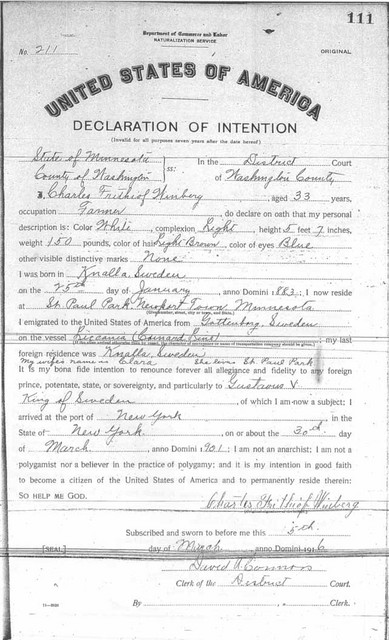 111
Department of Commerce and Labor
NATURALIZATION SERVICE
No. 211
ORIGINAL
UNITED STATES OF AMERICA
DECLARATION OF INTENTION
(Invalid for all purposes seven years after the date hereof)
State of Minnesota
County of Washington
ss:
In the District Court
of Washington County
I, Charles Frithiof Winberg, aged 33 years,
occupation Farmer, do declare on oath that my personal
description is: Color White, complexion Light, height 5 feet 7 inches,
weight 150 pounds, color of hair Light Brown, color of eyes Blue
other visible distinctive marks None
I was born in Knalla, Sweden
on the 25th day of January, anno Domini 1883; I now reside
at St. Paul Park Newport Town Minnesota
I emigrated to the United States of America from Gottenburg, Sweden
on the vessel; my last
foreign residence was Knalla, Sweden
My wifes name is Clara She lives St. Paul Park
It is my bona fide intention to renounce forever all allegiance and fidelity to any foreign
prince, potentate, state, or sovereignty, and particularly to Gustavus V
King of Sweden, of which I am now a subject; I
arrived at the port of New York, in the
State of New York, on or about the 30th day
of March, anno Domini 1901; I am not an anarchist; I am not a
polygamist nor a believer in the practice of polygamy; and it is my intention in good faith
to become a citizen of the United States of America and to permanently reside therein:
SO HELP ME GOD.
Charles Frithiof Winberg
Subscribed and sworn to before me this 5th
[SEAL] day of March, anno Domini 1916
Clerk of the District Court.
By, Clerk.